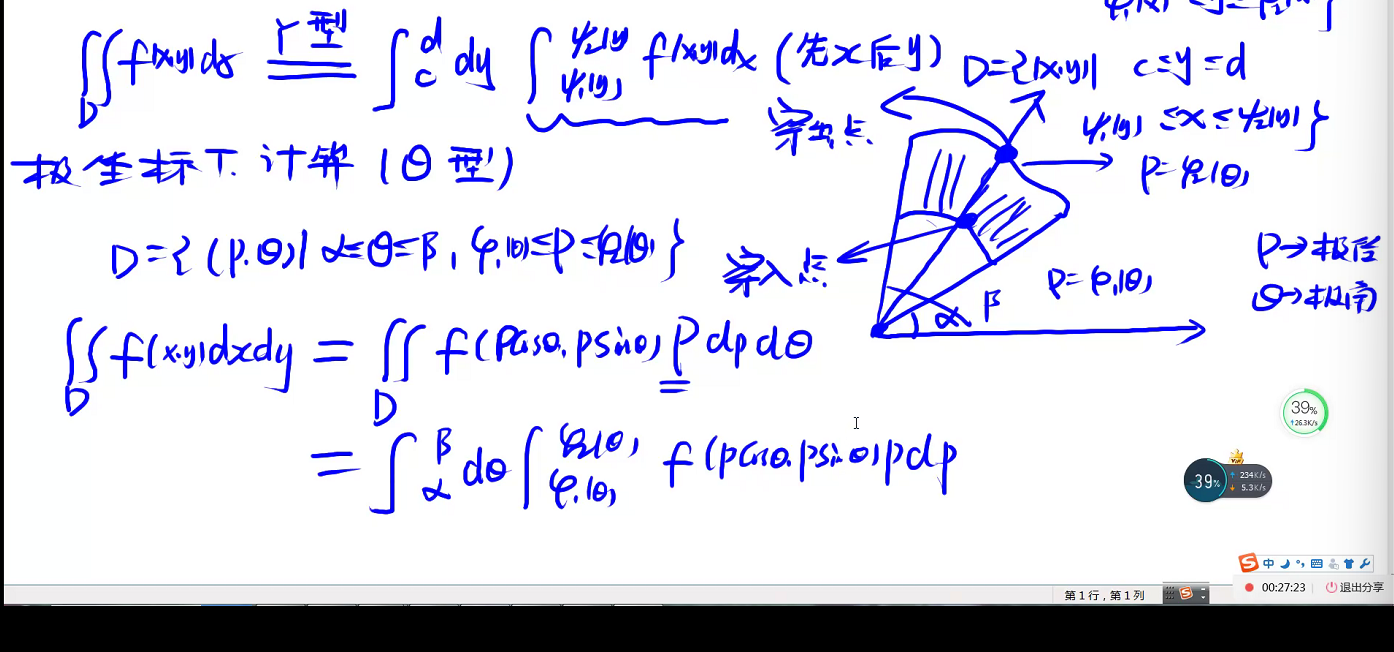 ∬_D f(x,y)dσ Y型 ∫_c^d dy ∫_{ψ₁(y)}^{ψ₂(y)} f(x,y)dx (先x后y) D={(x,y)| c≤y≤d
ψ₁(y) ≤x≤ψ₂(y)}
穿出点
ρ=φ₂(θ)
极坐标下计算(θ型)
D={(ρ,θ)| α≤θ≤β, φ₁(θ)≤ρ≤φ₂(θ)}
穿入点
ρ=φ₁(θ)
β
α
ρ→极径
θ→极角
∬_D f(x,y)dxdy = ∬_D f(ρcosθ,ρsinθ) ρ dρdθ
= ∫_α^β dθ ∫_{φ₁(θ)}^{φ₂(θ)} f(ρcosθ,ρsinθ)ρdρ
39%
↑26.3K/s
39%
VIP
↑ 234K/s
↓ 5.3K/s
中
第1行,第1列
00:27:23
退出分享